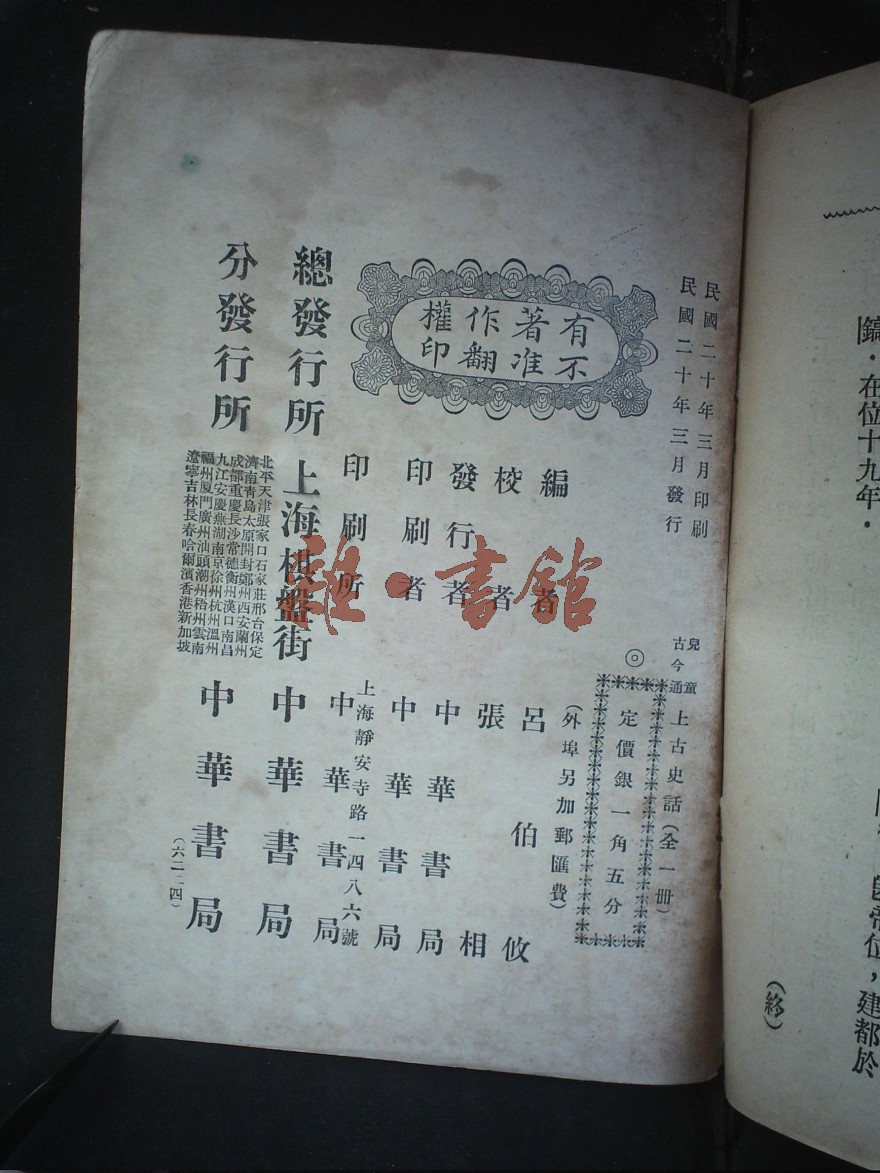 鎬．在位十九年．
卽帝位，建都於
（終）
民國二十年三月印刷
民國二十年三月發行
兒童
古今通
上古史話（全一冊）
◎定價銀一角五分
（外埠另加郵匯費）
有不
著准
作翻
權印
編者 呂伯攸
校者 張相
發行者 中華書局
印刷者 中華書局
上海靜安寺路一四八六號
印刷所 中華書局
總發行所 上海棋盤街 中華書局
分發行所
北平天津張家口石家莊邢台保定
濟南青島太原開封鄭州西安蘭州
成都重慶長沙常德衡州漢口南昌
九江安慶蕪湖南京徐州杭州溫州
福州厦門廣州汕頭潮州梧州雲南
遼寧吉林長春哈爾濱香港新加坡
中華書局
（六二二四）
雜·書館